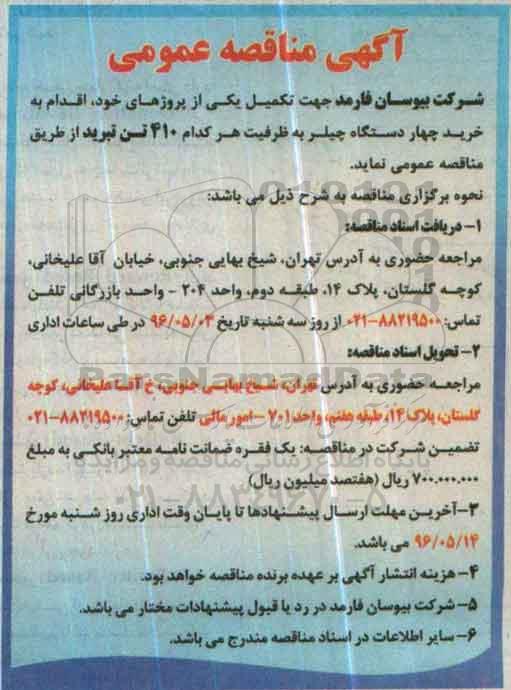 آگهی مناقصه عمومی
شرکت بیوسان فارمد جهت تکمیل یکی از پروژهای خود، اقدام به
خرید چهار دستگاه چیلر به ظرفیت هر کدام ۴۱۰ تن تبرید از طریق
مناقصه عمومی نماید.
نحوه برگزاری مناقصه به شرح ذیل می باشد:
۱- دریافت اسناد مناقصه:
مراجعه حضوری به آدرس تهران، شیخ بهایی جنوبی، خیابان آقا علیخانی،
کوچه گلستان، پلاک ۱۴، طبقه دوم، واحد ۲۰۴ - واحد بازرگانی تلفن
تماس: ۸۸۲۱۹۵۰۰-۰۲۱ از روز سه شنبه تاریخ ۹۶/۰۵/۰۳ در طی ساعات اداری
۲- تحویل اسناد مناقصه:
مراجعه حضوری به آدرس تهران، شیخ بهایی جنوبی، خ آقا علیخانی، کوچه
گلستان، پلاک ۱۴، طبقه هفتم، واحد ۷۰۱ - امور مالی تلفن تماس: ۸۸۲۱۹۵۰۰-۰۲۱
تضمین شرکت در مناقصه: یک فقره ضمانت نامه معتبر بانکی به مبلغ
۷۰۰.۰۰۰.۰۰۰ ریال (هفتصد میلیون ریال)
۳- آخرین مهلت ارسال پیشنهادها تا پایان وقت اداری روز شنبه مورخ
۹۶/۰۵/۱۴ می باشد.
۴- هزینه انتشار آگهی بر عهده برنده مناقصه خواهد بود.
۵- شرکت بیوسان فارمد در رد یا قبول پیشنهادات مختار می باشد.
۶- سایر اطلاعات در اسناد مناقصه مندرج می باشد.
ParsNamadData
پایگاه اطلاع رسانی مناقصه و مزایده
۰۲۱-۸۸۳۴۹۶۷۰-۵